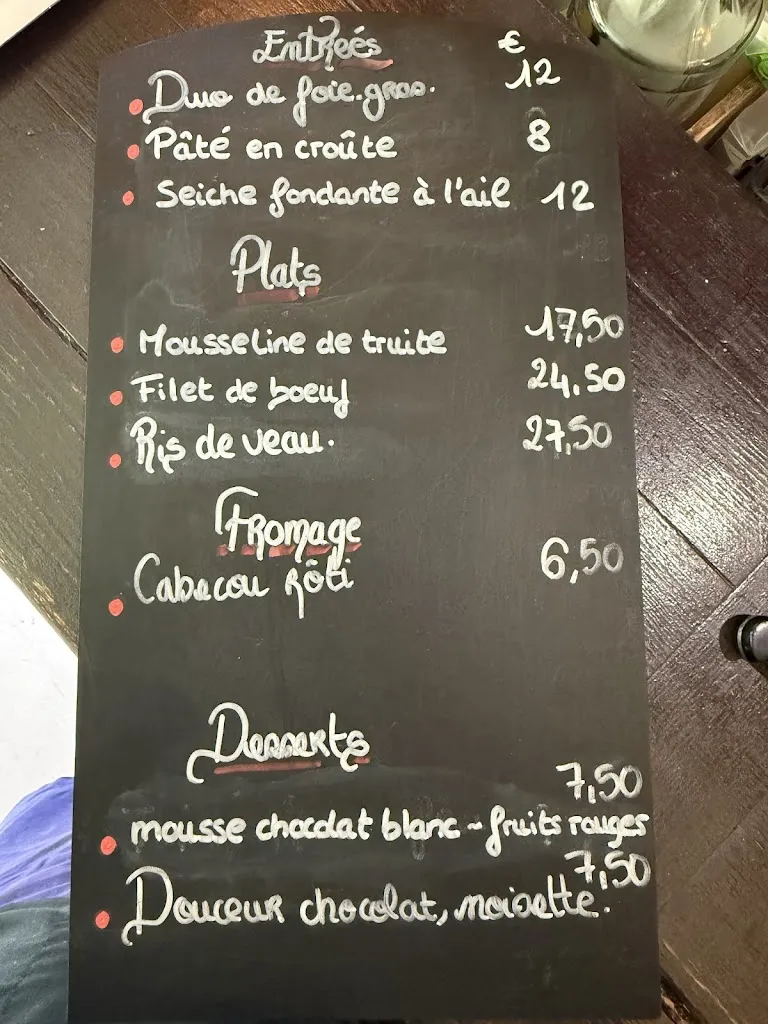 Entreés €
Duo de foie.gras. 12
Pâté en croûte 8
Seiche fondante à l'ail 12
Plats
Mousseline de truite 17,50
Filet de boeuf 24,50
Ris de veau. 27,50
Fromage
Cabecou rôti 6,50
Desserts
7,50
mousse chocolat blanc - fruits rouges
7,50
Douceur chocolat, noisette.